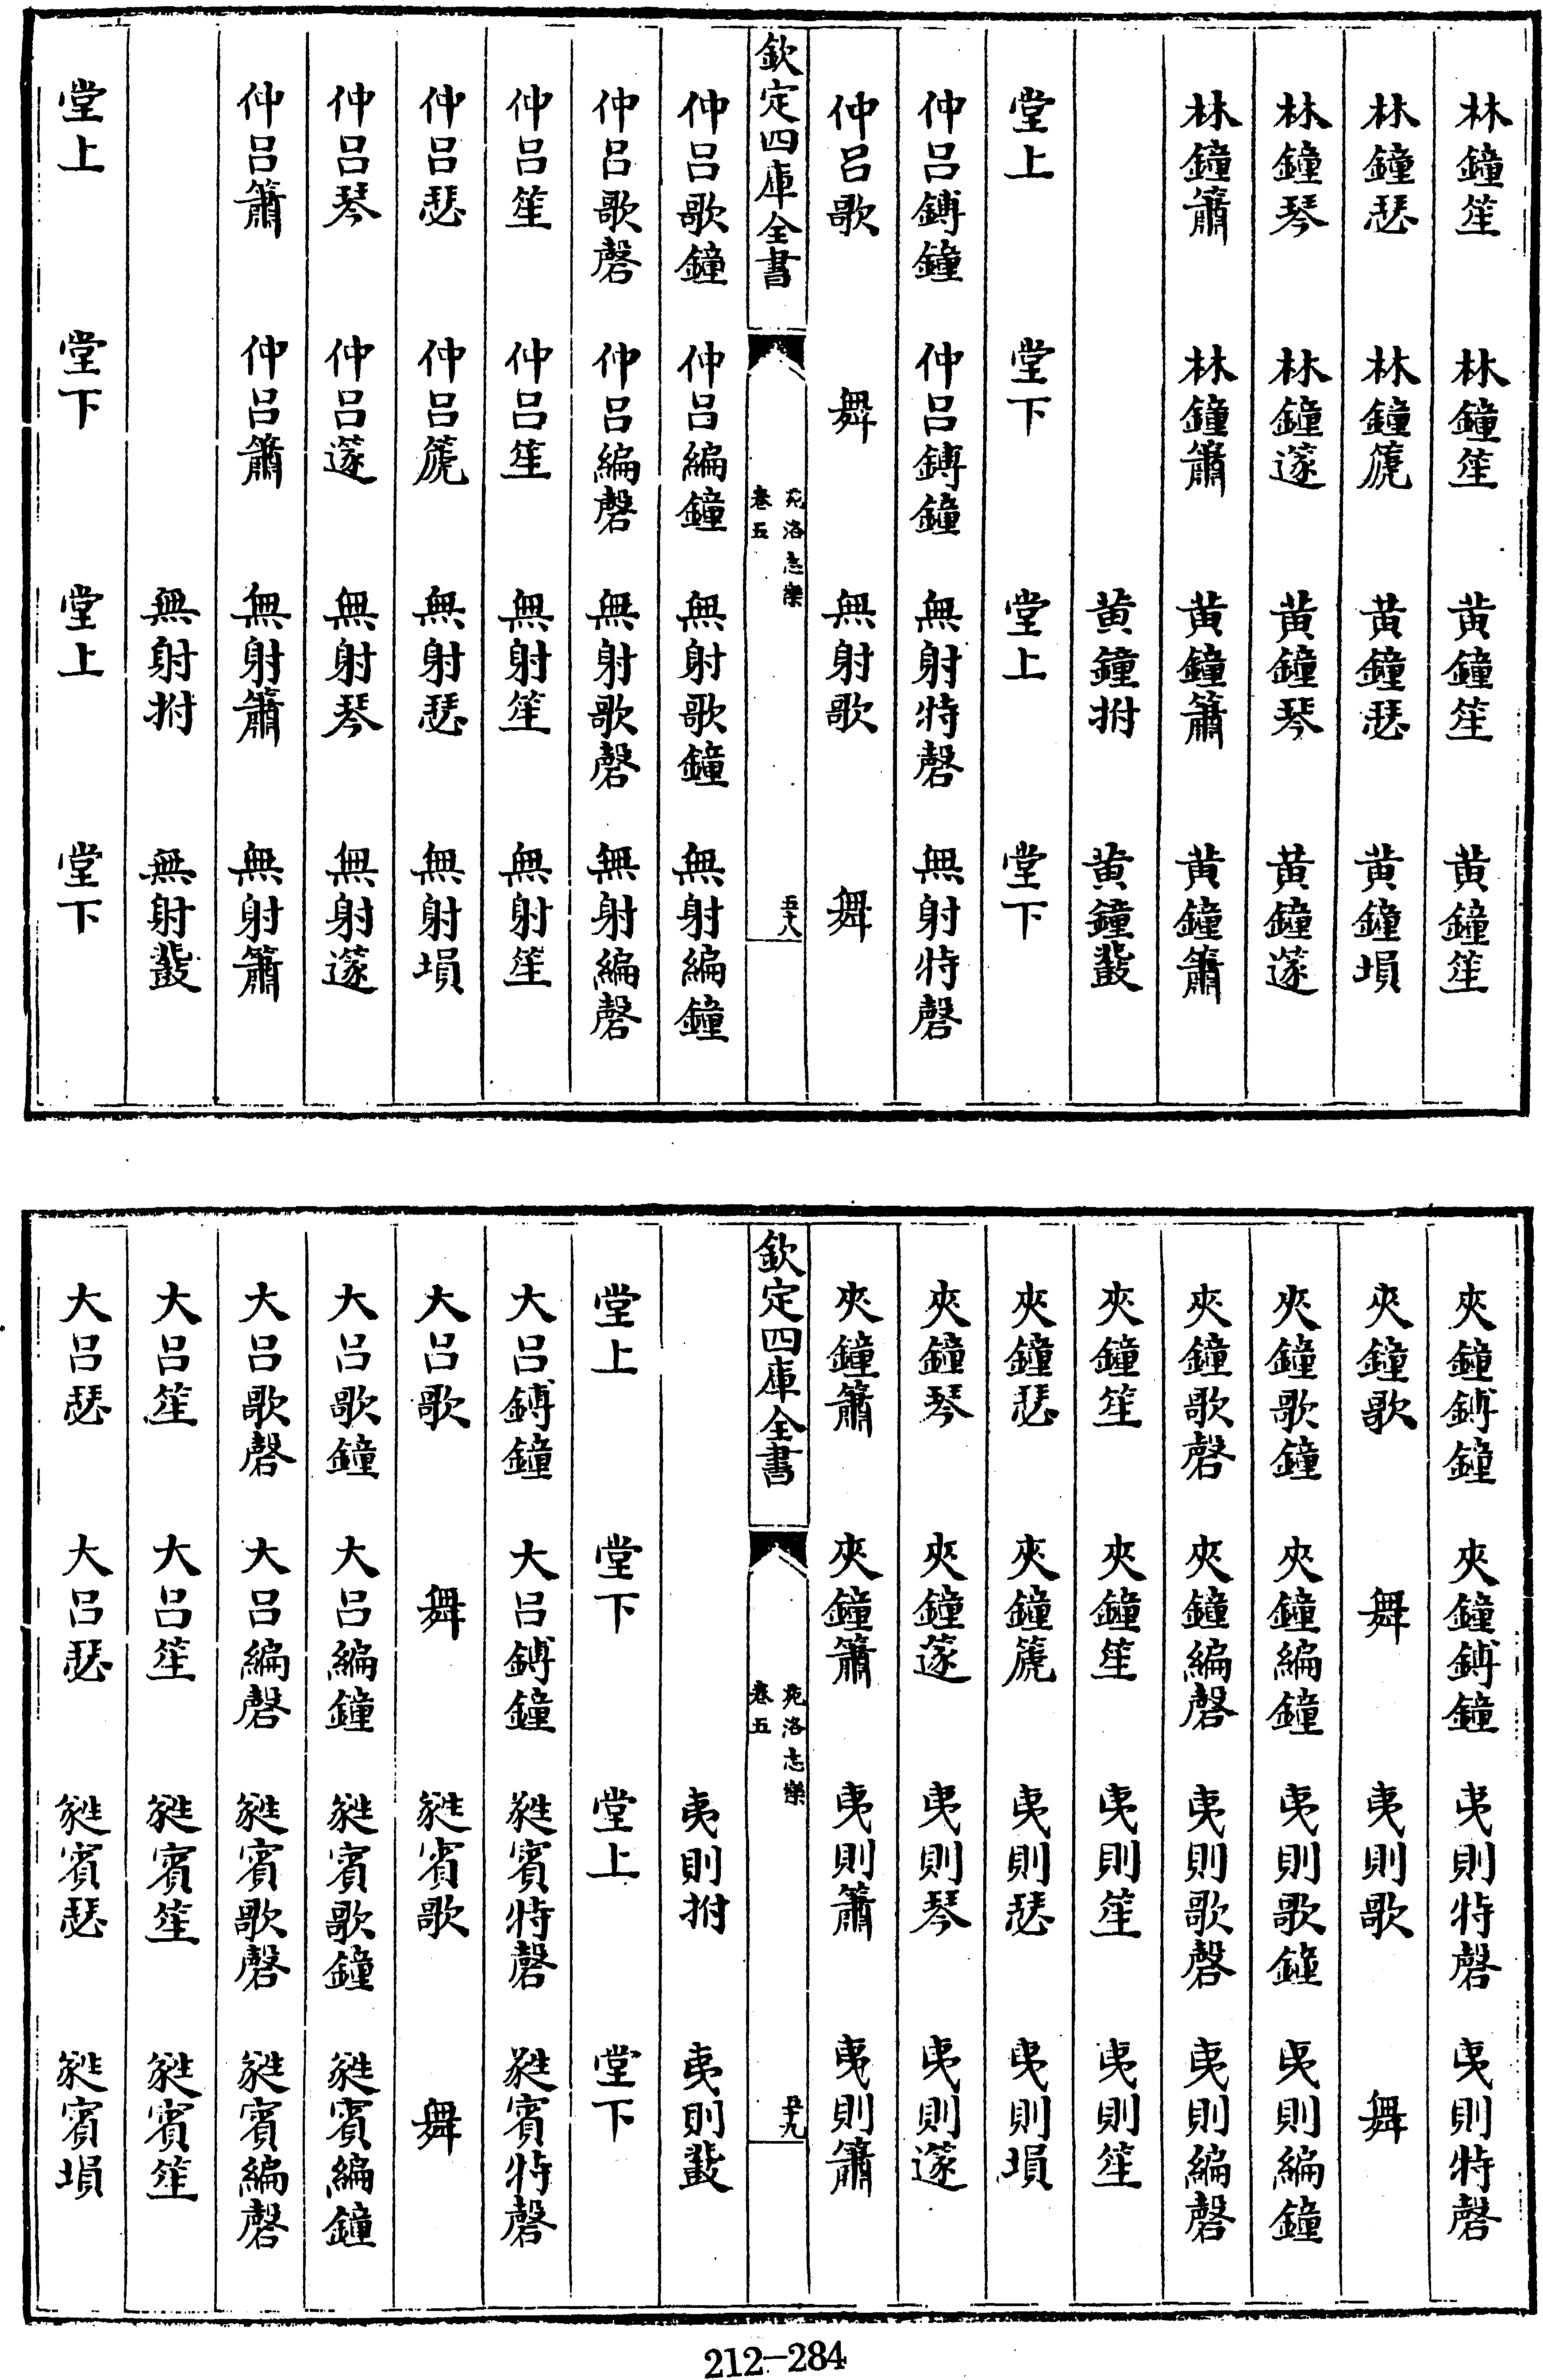 林鐘笙　林鐘笙　黃鐘笙　黃鐘笙
林鐘瑟　林鐘篪　黃鐘瑟　黃鐘塤
林鐘琴　林鐘篴　黃鐘琴　黃鐘篴
林鐘簫　林鐘簫　黃鐘簫　黃鐘簫
黃鐘拊　黃鐘鼗
堂上　堂下　堂上　堂下
仲呂鎛鐘　仲呂鎛鐘　無射特磬　無射特磬
仲呂歌　舞　無射歌　舞
欽定四庫全書　苑洛志樂　卷五　五十八
仲呂歌鐘　仲呂編鐘　無射歌鐘　無射編鐘
仲呂歌磬　仲呂編磬　無射歌磬　無射編磬
仲呂笙　仲呂笙　無射笙　無射笙
仲呂瑟　仲呂篪　無射瑟　無射塤
仲呂琴　仲呂篴　無射琴　無射篴
仲呂簫　仲呂簫　無射簫　無射簫
無射拊　無射鼗
堂上　堂下　堂上　堂下
夾鐘鎛鐘　夾鐘鎛鐘　夷則特磬　夷則特磬
夾鐘歌　舞　夷則歌　舞
夾鐘歌鐘　夾鐘編鐘　夷則歌鐘　夷則編鐘
夾鐘歌磬　夾鐘編磬　夷則歌磬　夷則編磬
夾鐘笙　夾鐘笙　夷則笙　夷則笙
夾鐘瑟　夾鐘篪　夷則瑟　夷則塤
夾鐘琴　夾鐘篴　夷則琴　夷則篴
夾鐘簫　夾鐘簫　夷則簫　夷則簫
欽定四庫全書　苑洛志樂　卷五　五十九
夷則拊　夷則鼗
堂上　堂下　堂上　堂下
大呂鎛鐘　大呂鎛鐘　蕤賓特磬　蕤賓特磬
大呂歌　舞　蕤賓歌　舞
大呂歌鐘　大呂編鐘　蕤賓歌鐘　蕤賓編鐘
大呂歌磬　大呂編磬　蕤賓歌磬　蕤賓編磬
大呂笙　大呂笙　蕤賓笙　蕤賓笙
大呂瑟　大呂瑟　蕤賓瑟　蕤賓塤
212-284